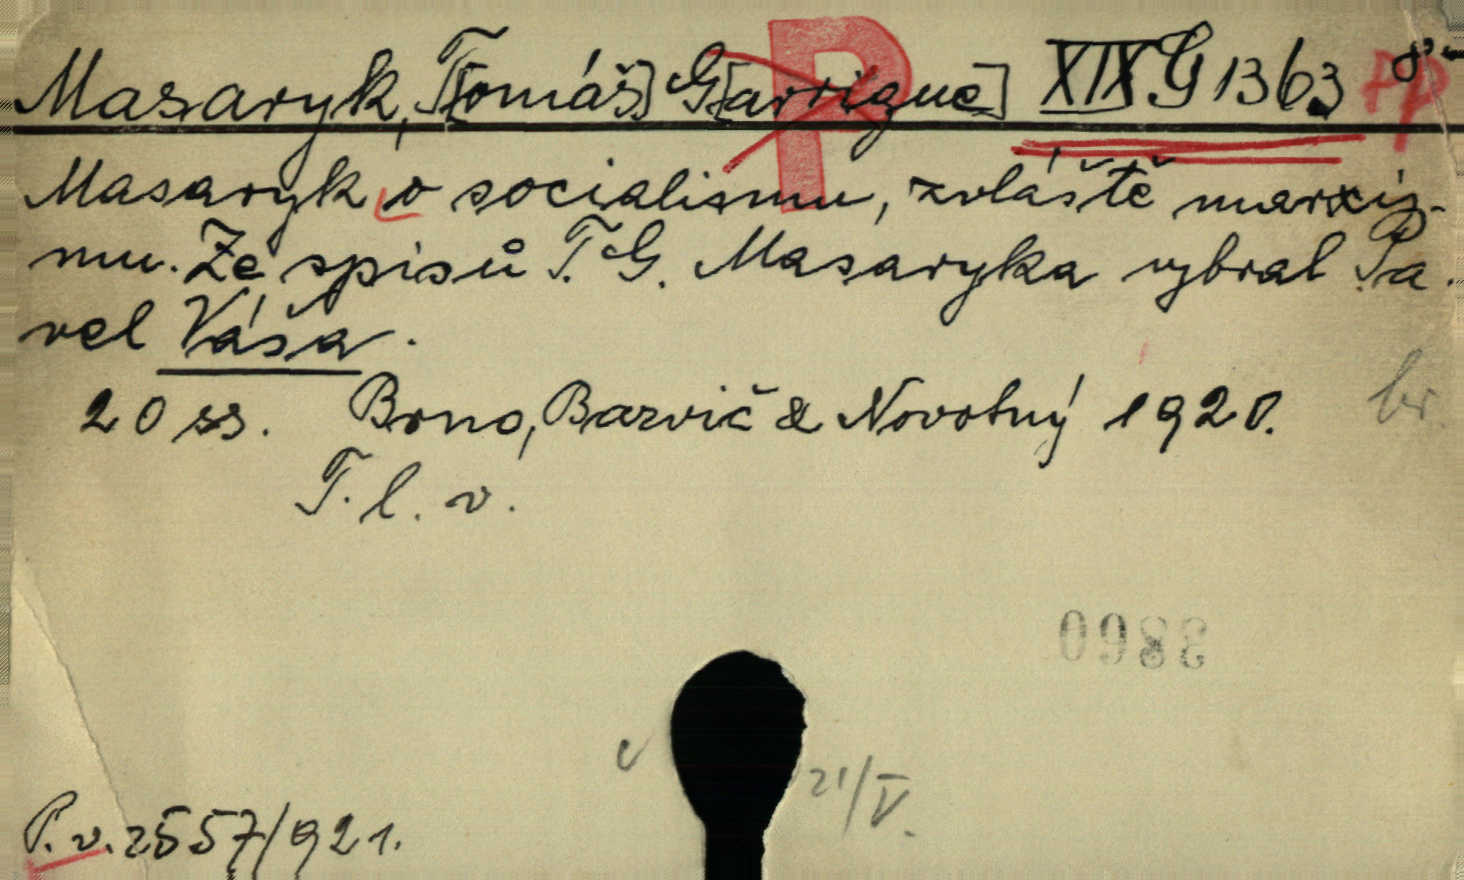 Masaryk, T[omáš] G[arrigue] XIX G 1363
P
Masaryk o socialismu, zvláště marxis-
mu. Ze spisů T. G. Masaryka vybral Pa-
vel Váša.
20 ss. Brno, Barvič & Novotný 1920.
br.
T. l. v.
0983
21/V.
P. v. 2557/921.